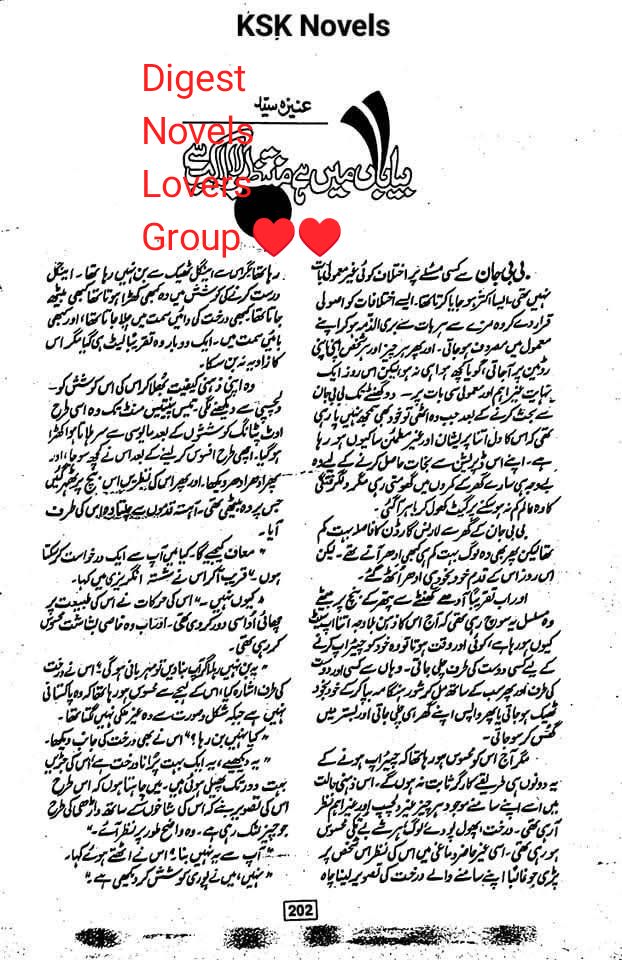 KSK Novels
Digest
Novels
Lovers
Group ❤❤
عنیزہ سید
بیاباں میں ہے منتظر لالہ کب سے
بی بی جان سے کسی مسئلے پر اختلاف کوئی غیر معمولی بات
نہیں تھی۔ ایسا اکثر ہو جایا کرتا تھا۔ ایسے اختلافات کو اصولی
قرار دے کر وہ مزے سے ہر بات سے بری الذمہ ہو کر اپنے
معمول میں مصروف ہو جاتی۔ اور پھر ہر چیز اور ہر شخص اپنی اپنی
روٹین پر آ جاتی، گویا کچھ ہوا ہی نہ ہو لیکن اس روز ایک
نہایت غیر اہم اور معمولی سی بات پر۔ دو گھنٹے تک بی بی جان
سے بحث کرنے کے بعد جب وہ اٹھی تو خود بھی سمجھ نہیں پا رہی
تھی کہ اس کا دل اتنا پریشان اور غیر مطمئن سا کیوں ہو رہا
ہے۔ اپنے اس ڈپریشن سے نجات حاصل کرنے کے لیے وہ
بے وجہ ہی سارے گھر کے کمروں میں گھومتی رہی مگر دلگرفتگی
کا وہ عالم کم نہ ہو سکنے پر گیٹ کھول کر باہر آ گئی۔
بی بی جان کے گھر سے لارنس گارڈن کا فاصلہ بہت کم
تھا لیکن پھر بھی وہ لوگ بہت کم ہی کبھی ادھر آتے تھے۔ لیکن
اس روز اس کے قدم خود بخود ہی ادھر اٹھ گئے۔
اور اب تقریباً آدھے گھنٹے سے پتھر کے بنچ پر بیٹھے
وہ مسلسل یہ سوچ رہی تھی کہ آج اس کا ذہن بلاوجہ اتنا اپ سیٹ
کیوں ہو رہا ہے، کوئی اور وقت ہوتا تو وہ خود کو چیئر اپ کرنے
کے لیے کسی دوست کی طرف چلی جاتی۔ وہاں سے کسی اور دوست
کی طرف اور پھر سب کے ساتھ مل کر شور ہنگامہ بپا کر کے خود بخود
ٹھیک ہو جاتی یا پھر واپس اپنے گھر ہی چلی جاتی اور بستر میں
گھس کر سو جاتی۔
مگر آج اس کو محسوس ہو رہا تھا کہ چیئر اپ ہونے کے
یہ دونوں ہی طریقے کارگر ثابت نہ ہوں گے۔ اس ذہنی حالت
میں اسے اپنے سامنے موجود ہر چیز غیر دلچسپ اور غیر اہم نظر
آ رہی تھی۔ درخت، پھول، پودے لوگ ہر شے بے تکی محسوس
ہو رہی تھی۔ اسی غیر حاضر دماغی میں اس کی نظر اس شخص پر
پڑی جو غالباً اپنے سامنے والے درخت کی تصویر لینا چاہ
رہا تھا مگر اس سے اینگل ٹھیک سے بن نہیں رہا تھا۔ اینگل
درست کرنے کی کوشش میں وہ کبھی کھڑا ہوتا تھا کبھی بیٹھ
جاتا تھا کبھی درخت کی دائیں سمت میں چلا جاتا تھا، اور کبھی
بائیں سمت میں۔ ایک دو بار وہ تقریباً لیٹ ہی گیا مگر اس
کا زاویہ نہ بن سکا۔
وہ اپنی ذہنی کیفیت بھلا کر اس کی اس کوشش کو
دلچسپی سے دیکھنے لگی۔ تیس پینتیس منٹ تک وہ اسی طرح
اوٹ پٹانگ کوششوں کے بعد مایوسی سے سر ہلاتا ہوا کھڑا
ہو گیا۔ اچھی طرح افسوس کر لینے کے بعد اس نے کچھ سوچا، اور
پھر ادھر ادھر دیکھا۔ اور پھر اس کی نظریں اس بنچ پر ٹھہر گئیں
جس پر وہ بیٹھی تھی۔ آہستہ قدموں سے چلتا وہ اس کی طرف
آیا۔
"معاف کیجیے گا۔ کیا میں آپ سے ایک درخواست کر سکتا
ہوں۔" قریب آ کر اس نے شستہ انگریزی میں کہا۔
"کیوں نہیں۔" اس کی حرکات نے اس کی طبیعت پر
چھائی اداسی دور کر دی تھی۔ اور اب وہ خاصی بشاشت محسوس
کر رہی تھی۔
"یہ بن نہیں رہا اگر آپ بنا دیں تو مہربانی ہوگی۔" اس نے درخت
کی طرف اشارہ کیا، اس کے لہجے سے محسوس ہو رہا تھا کہ وہ پاکستانی
نہیں ہے جبکہ شکل و صورت سے وہ غیر ملکی نہیں لگتا تھا۔
"کیا نہیں بن رہا؟" اس نے بھی درخت کی جانب دیکھا۔
"یہ دیکھیے، یہ ایک بہت پرانا درخت ہے، اس کی جڑیں
بہت دور تک پھیل ہوئی ہیں۔ میں چاہتا ہوں کہ اس طرح
اس کی تصویر بنے کہ اس کی شاخوں کے ساتھ داڑھی کی طرح
جو چیز لٹک رہی ہے۔ وہ واضح طور پر نظر آئے۔"
"آپ سے یہ نہیں بنا۔" اس نے اٹھتے ہوئے کہا۔
"نہیں، میں نے پوری کوشش کر دیکھی ہے۔"
202